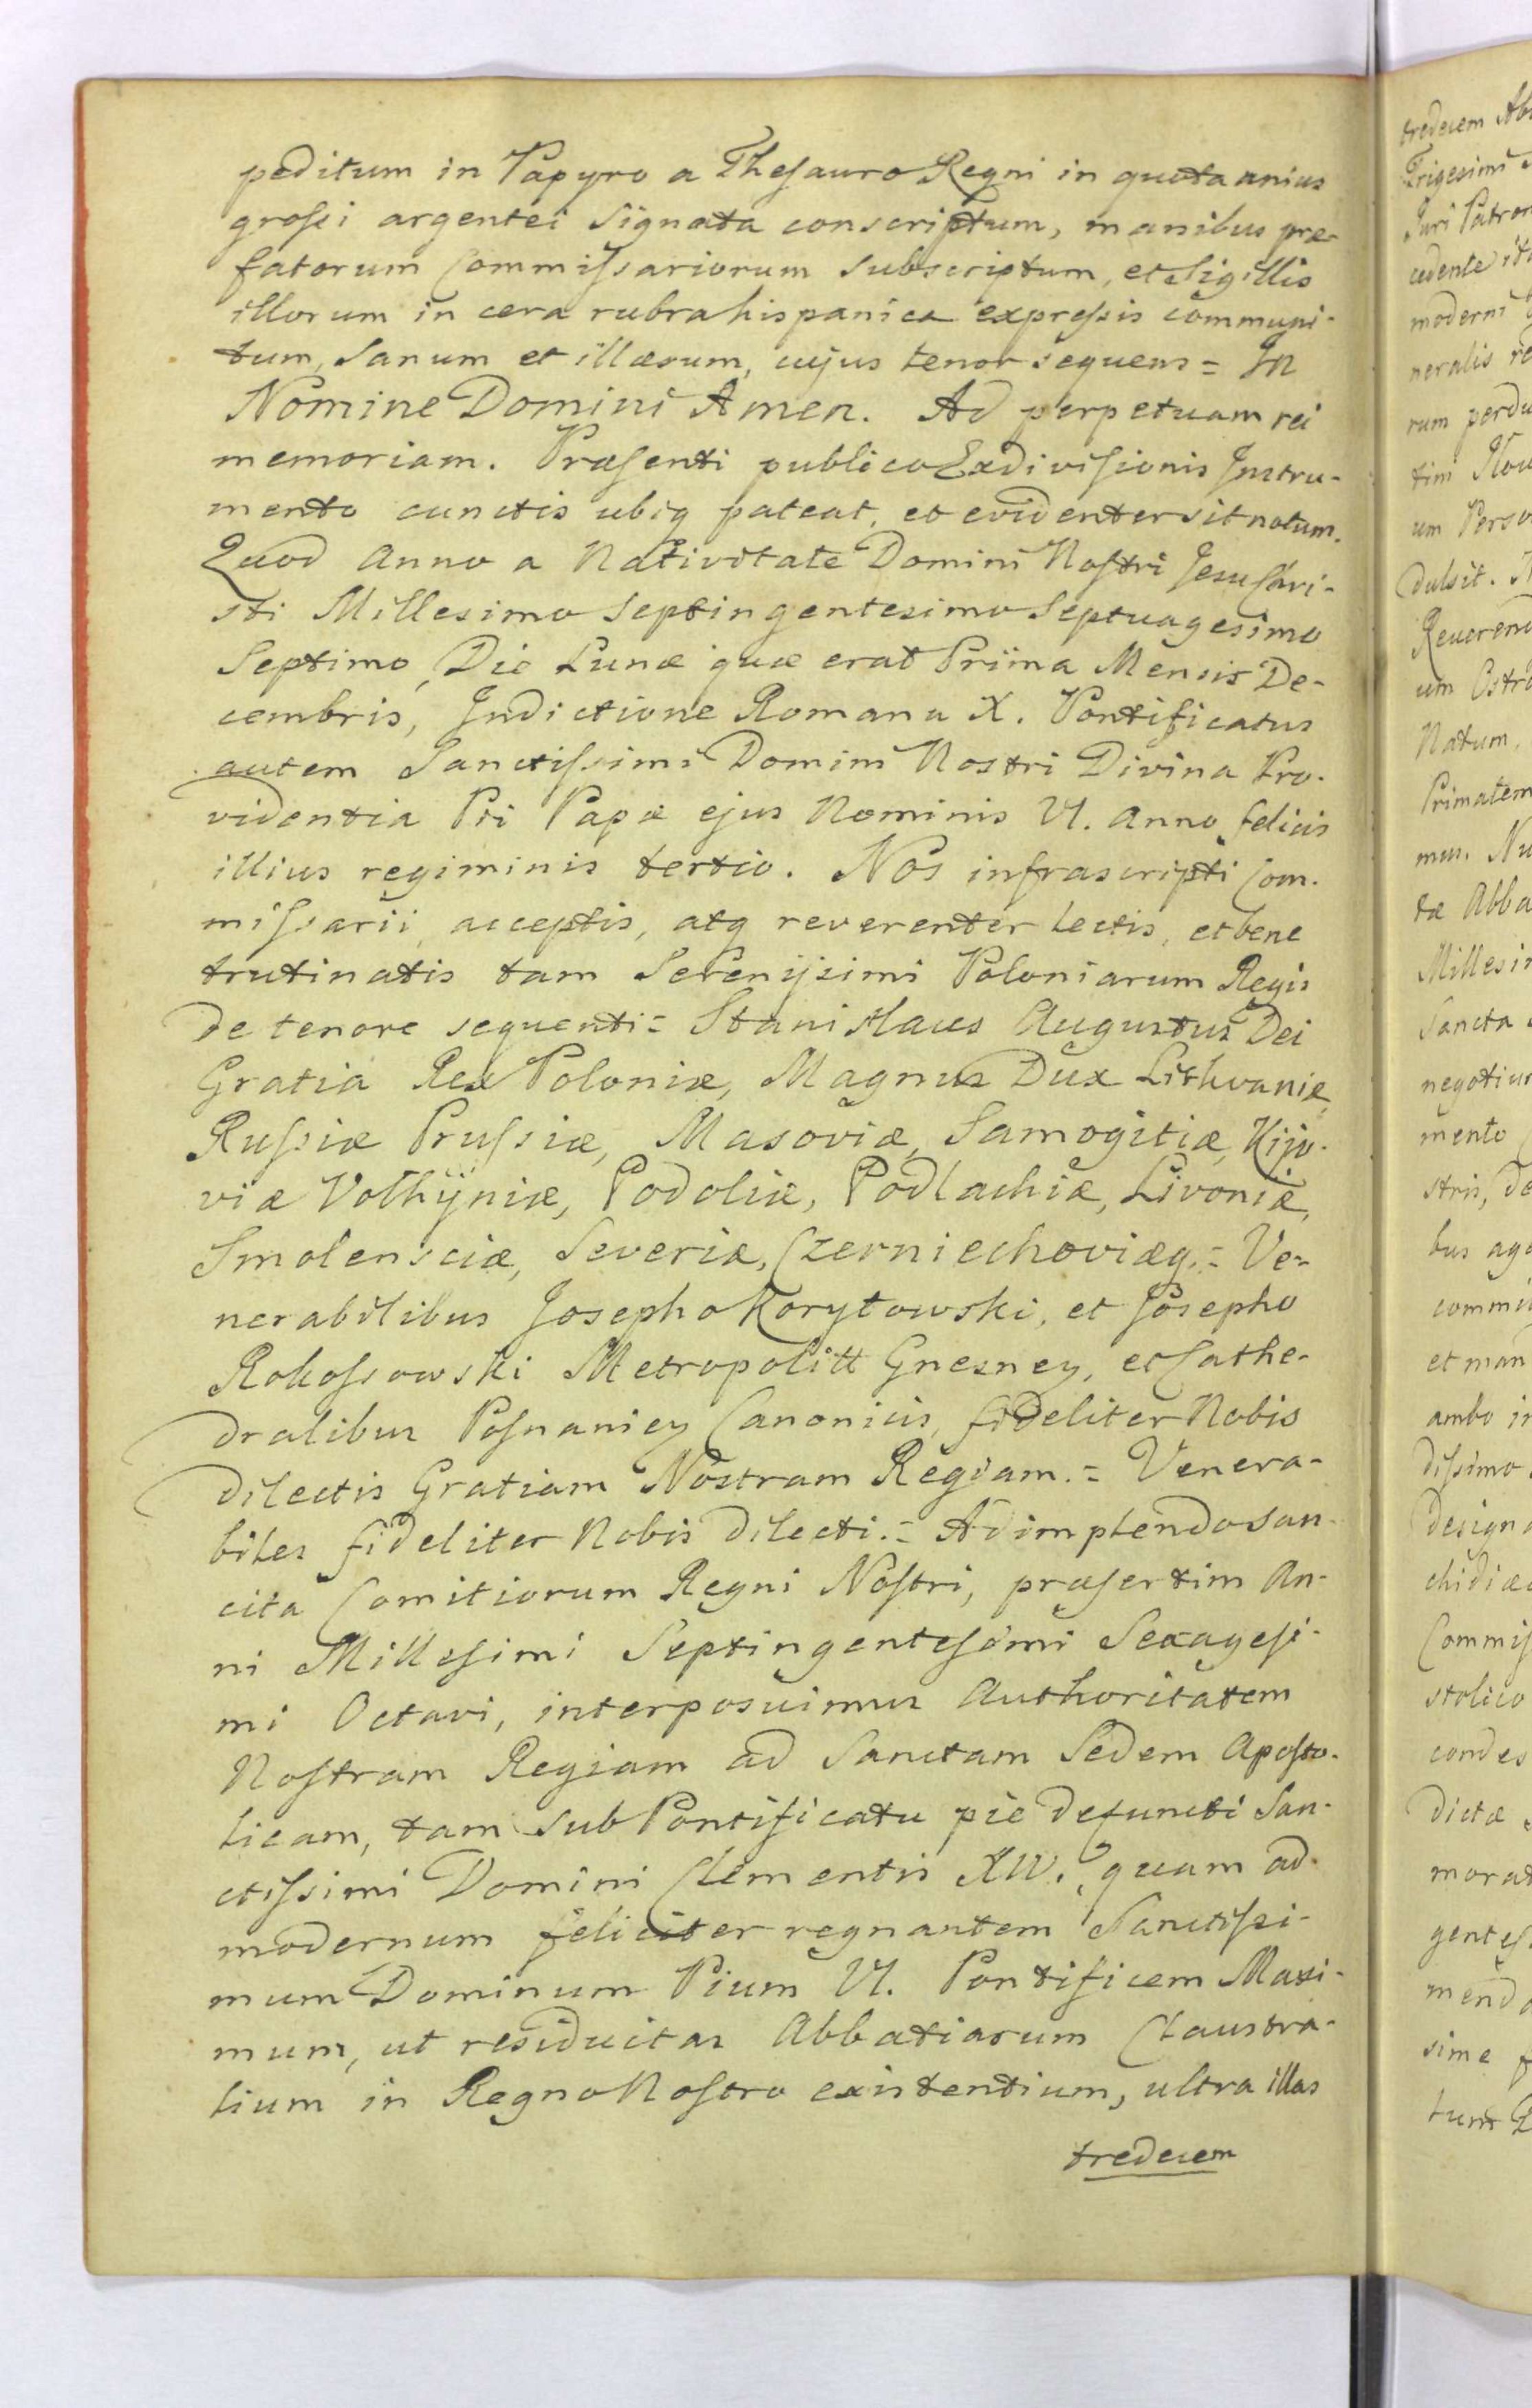 peditum in Papyro a Thesauro Regni in quota unius
grossi argentei Signata conscriptum, manibus præ-
fatorum Commissariorum subscriptum, et Sigillis
illorum in cera rubra hispanica expressis communi-
tum, Sanum et illæsum, cujus tenor sequens = In
Nomine Domini Amen. Ad perpetuam rei
memoriam. Præsenti publico Exdivisionis Instru-
mento cunctis ubiq pateat, et evidenter sit notum.
Quod Anno a Nativitate Domini Nostri Jesu Chri-
sti Millesimo Septingentesimo Septuagesimo
Septimo, Die Lunæ quæ erat Prima Mensis De-
cembris, Indictione Romana X. Pontificatus
autem Sanctissimi Domini Nostri Divina Pro-
videntia Pii Papæ ejus Nominis VI. Anno felicis
illius regiminis tertio. Nos infrascripti Com-
missarii, acceptis, atq reverenter Lectis, et bene
trutinatis tam Serenissimi Poloniarum Regis
de tenore sequenti = Stanislaus Augustus Dei
Gratia Rex Poloniæ, Magnus Dux Lithvaniæ,
Russiæ Prussiæ, Masoviæ, Samogitiæ, Kijo-
viæ Volhÿniæ, Podoliæ, Podlachiæ, Livoniæ,
Smolensciæ, Severiæ, Czerniechoviæq. = Ve-
nerabilibus Josepho Korytowski, et Josepho
Rokossowski Metropolitt Gnesney, et Cathe-
dralibus Posnaniey Canonicis, fideliter Nobis
dilectis Gratiam Nostram Regiam. = Venera-
biles fideliter Nobis dilecti. = Adimplendo San-
cita Comitiorum Regni Nostri, præsertim An-
ni Millesimi Septingentesimi Sexagesi-
mi Octavi, interposuimus Authoritatem
Nostram Regiam ad Sanctam Sedem Aposto-
licam, tam sub Pontificatu pie defuncti San-
ctissimi Domini Clementis XIV. quam ad
modernum feliciter regnantem Sanctissi-
mum Dominum Pium VI. Pontificem Maxi-
mum, ut residuitas Abbatiarum Claustra-
lium in Regno Nostro existentium, ultra illas
tredecem
tredecem
Trigesimi
Juri
cedente
moderni
neralis
rum
tini
um
dulsit.
um
Natum,
Primatem
mus.
tæ
Sancta
mento
stris, de
bus
et
ambo
dissimo
stolico
dictæ
sime